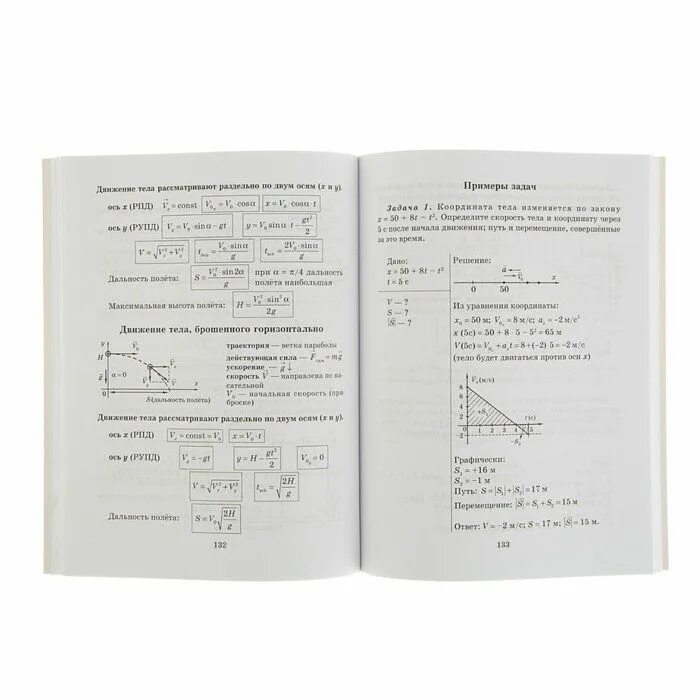 Движение тела рассматривают раздельно по двум осям (x и y).
ось x (РПД) V⃗ₓ = const V₀ₓ = V₀ cosα x = V₀ cosα · t
ось y (РУПД) Vᵧ = V₀ sinα − gt y = V₀ sinα · t − gt²/2
V = √(Vₓ² + Vᵧ²) tпод = V₀ · sinα/g tпол = 2V₀ · sinα/g
Дальность полёта: S = V₀² sin2α/g при α = π/4 дальность
полёта наибольшая
Максимальная высота полёта: H = V₀² · sin²α/2g
Движение тела, брошенного горизонтально
y
H
V⃗₀
g⃗
α = 0
Vₓ
Vᵧ
V⃗
x
0
S (дальность полёта)
траектория — ветка параболы
действующая сила — F⃗тяж = mg⃗
ускорение — g⃗ ↓
скорость V⃗ — направлена по ка-
сательной
V₀ — начальная скорость (при
броске)
Движение тела рассматривают раздельно по двум осям (x и y).
ось x (РПД) Vₓ = const = V₀ x = V₀ · t
ось y (РУПД) Vᵧ = −gt y = H − gt²/2 V₀ᵧ = 0
V = √(Vₓ² + Vᵧ²) tпол = √(2H/g)
Дальность полёта: S = V₀√(2H/g)
132
Примеры задач
Задача 1. Координата тела изменяется по закону
x = 50 + 8t − t². Определите скорость тела и координату через
5 с после начала движения; путь и перемещение, совершённые
за это время.
Дано:
x = 50 + 8t − t²
t = 5 с
V — ?
S — ?
|S⃗| — ?
Решение:
a⃗
V₀
0 50
Из уравнения координаты:
x₀ = 50 м; V₀ₓ = 8 м/с; aₓ = −2 м/с²
x (5с) = 50 + 8 · 5 − 5² = 65 м
V (5с) = V₀ₓ + aₓt = 8 + (−2) · 5 = −2 м/с
(тело будет двигаться против оси x)
Vₓ (м/с)
8
6
4
2
0
−2
+S₁
1 2 3 4 5
t (с)
−S₂
Графически:
S₁ = +16 м
S₂ = −1 м
Путь: S = |S₁| + |S₂| = 17 м
Перемещение: |S⃗| = S₁ + S₂ = 15 м
Ответ: V = −2 м/с; S = 17 м; |S⃗| = 15 м.
133